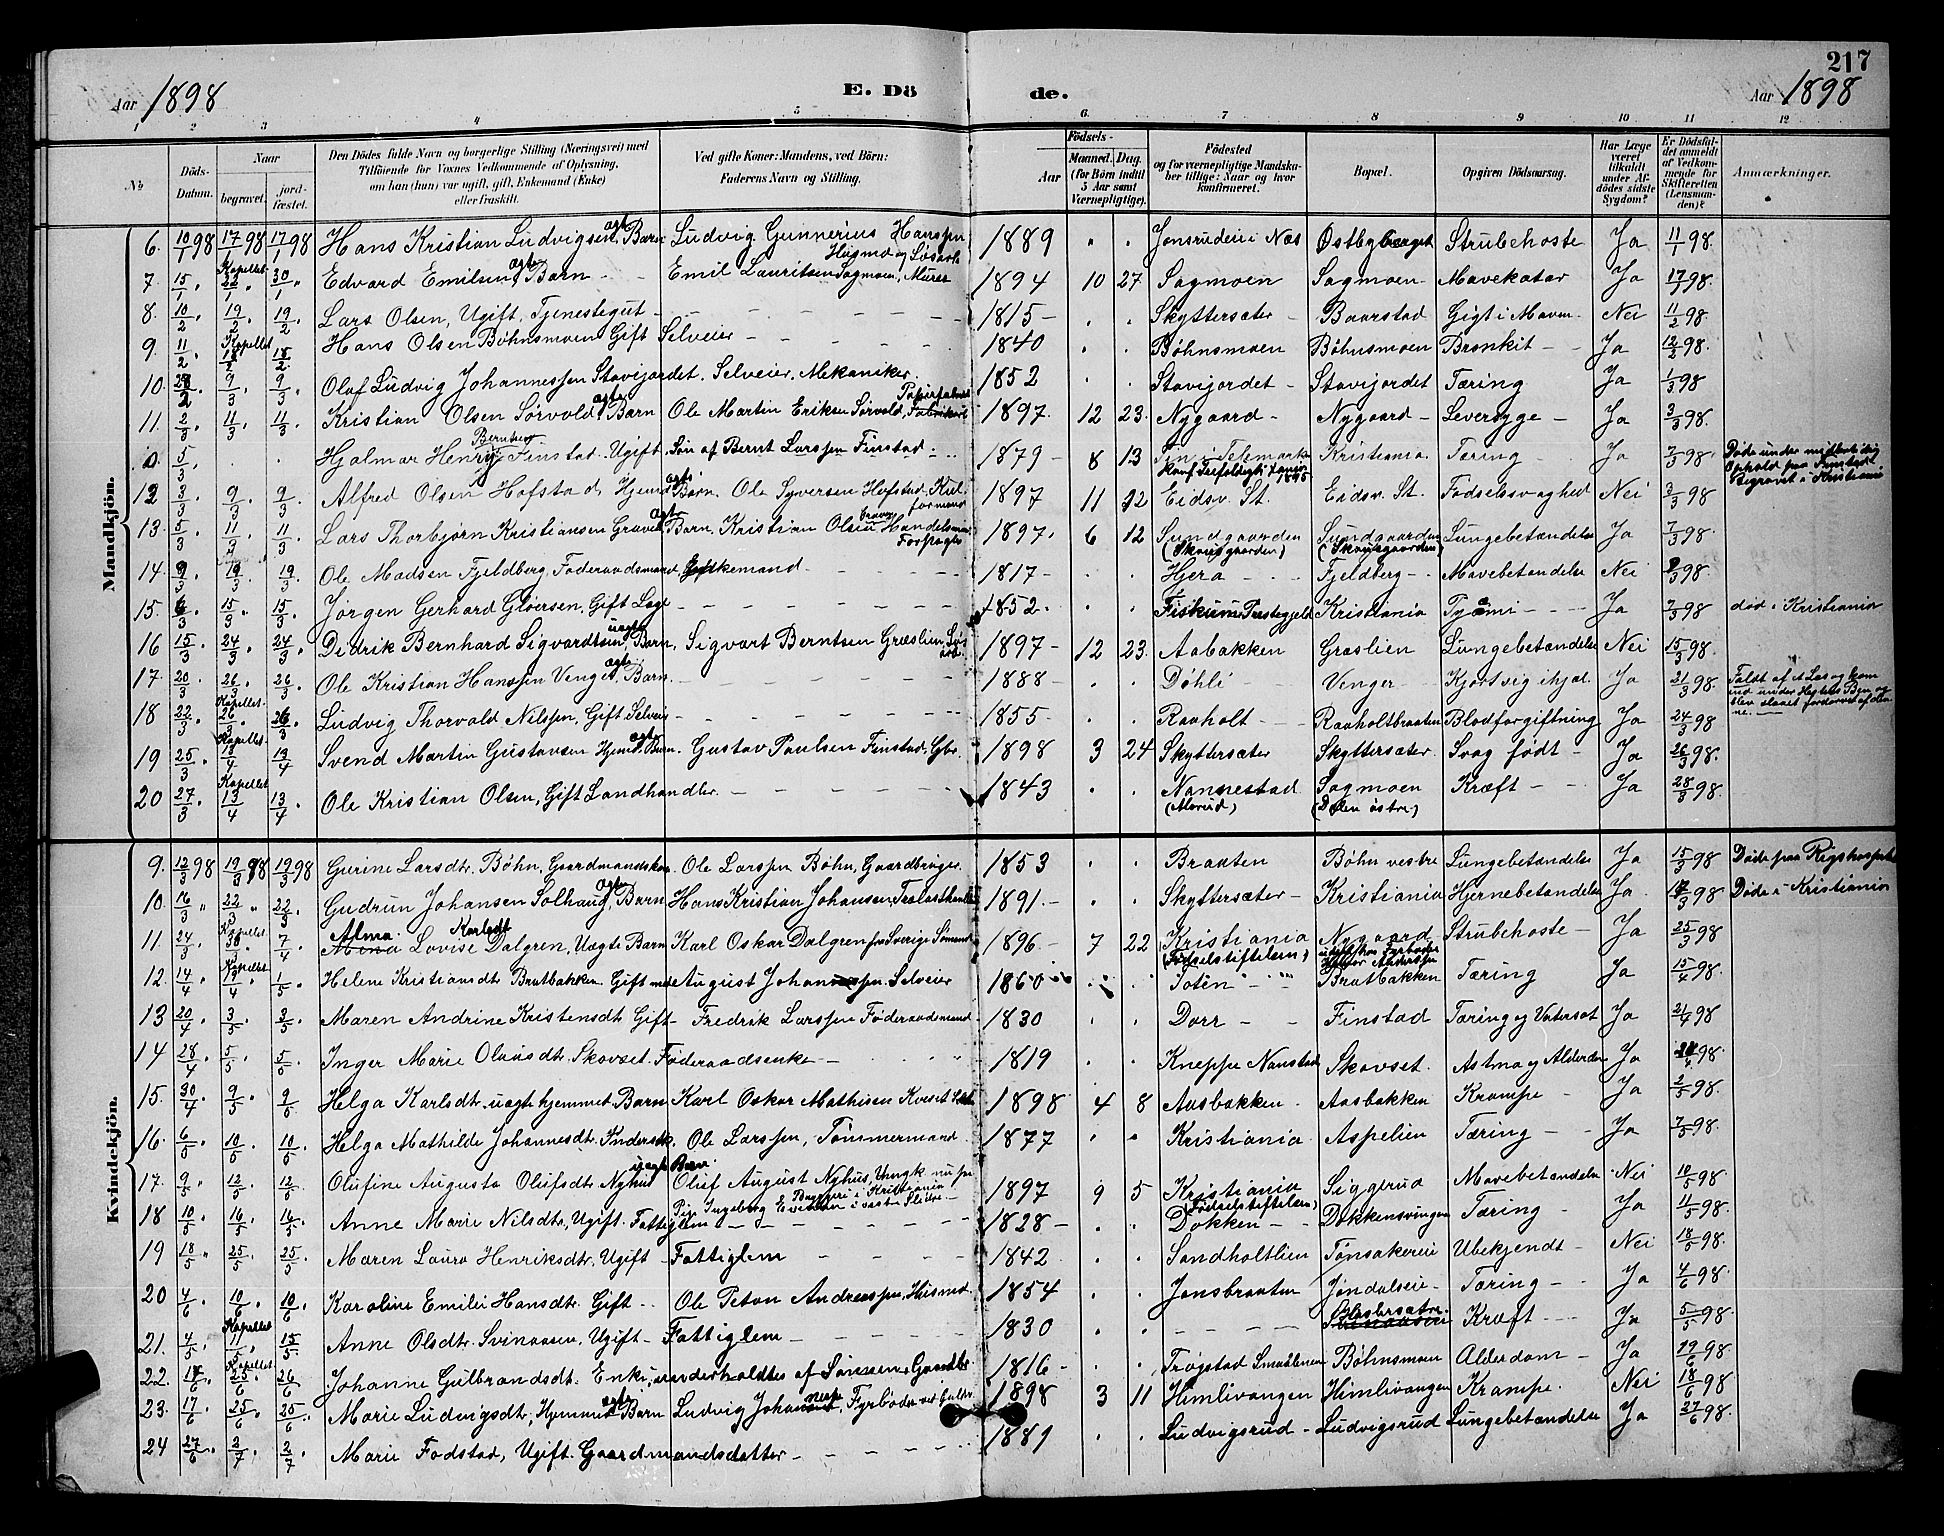 217
Aar 1898 E. Dö de. Aar 1898
1 2 3 4 5 6 7 8 9 10 11 12
№ Döds-Datum. Naar begravet. jord-fæstet. Den Dödes fulde Navn og borgerlige Stilling (Næringsvei) med Tilföiende for Voxnes Vedkommende af Oplysning, om han (hun) var ugift, gift, Enkemand (Enke) eller fraskilt. Ved gifte Koner: Mandens, ved Börn: Faderens Navn og Stilling. Födsels- Aar Maaned. Dag. (for Börn indtil 5 Aar samt Værnepligtige). Födested og for værnepligtige Mandskaber tillige: Naar og hvor konfirmeret. Bopæl. Opgiven Dödsaarsag. Har Læge været tilkaldt under Afdödes sidste Sygdom? Er Dödsfaldet anmeldt af Vedkommende for Skifteretten (Lensmanden)? Anmærkninger.
Mandkjön.
6. 10/1 98 17/1 98 17/1 98 Hans Kristian Ludvigsen, ægte Barn Ludvig Gunnerius Hanssen 1889 Jonsrudeie i Næs Østby Strubehoste Ja 11/1 98.
7. 15/1 " Kapellet 22/1 " 30/1 " Edvard Emilsen, ægte Barn Emil Lauritsen Sagmoen, Murer 1894 10 27 Sagmoen Sagmoen Mavekatar Ja 17/1 98.
8. 10/2 19/2 19/2 Lars Olsen, Ugift, Tjenestegut 1815 Skyttersæter Baarstad Gigt i Maven Nei 11/2 98.
9. 11/2 Kapellet 18/2 18/2 Hans Olsen Bøhnsmoen Gift Selveier 1840 Bøhnsmoen Bøhnsmoen Bronkit Ja 12/2 98.
10. 28/2 9/3 9/3 Olaf Ludvig Johannessen Stavijordet. Selveier. Mekaniker. 1852 Stavijordet Stavijordet Tæring Ja 1/3 98
11. 2/3 11/3 11/3 Kristian Olsen Sørvold, ægte Barn Ole Martin Eriksen Sørvold, 1897. 12 23. Nygaard Nygaard Leversyge Ja 3/3 98.
5/3 Hjalmar Henry Berntsen Finstad. Ugift Søn af Bernt Larssen Finstad 1879 8 13 i Telemarken Kristiania. Tæring Ja 7/3 98 Døde under midlertidig Ophold paa Finstad Begravet i Kristiania
12 3/3 9/3 9/3 Alfred Olsen Hofstad, Hjemd ægte Barn. Ole Syversen Hofstad, formand 1897 11 22 Eidsv. St. Eidsv. St. Fødselssvaghed Nei 3/3 98
13. 5/3 11/3 11/3 Lars Thorbjørn Kristiansen Graver ægte Barn. Kristian Olsen Handelsmand 1897. 6 12 Sundgaarden (Skougaarden) Sundgaarden (Skougaarden) Lungebetændelse Ja 7/3 98
14. 9/3 19/3 19/3 Ole Madsen Fjeldberg, Føderaadsmand, Enkemand 1817 Hjera Fjeldberg Mavebetændelse Nei 9/3 98.
15. 6/3 15/3 15/3 Jørgen Gerhard Gløersen, Gift Læge 1852. Fiskum Præstegjeld Kristiania Ja 7/3 98 død i Kristiania
16 15/3 24/3 24/3 Didrik Bernhard Sigvardtsen, uægte Barn, Sigvart Berntsen Græslien, 1897 12 23. Aabakken Græslien Lungebetændelse Nei 15/3 98.
17. 20/3 26/3 26/3 Ole Kristian Hanssen Venger, ægte Barn. 1888 Døhli Venger Kjørt sig ihjel Ja 21/3 98. Faldt af et Læs og kom ind under Hestens Ben og blev slaaet fordærvet af denne.
18 22/3 Kapellet 26/3 26/3 Ludvig Thorvald Nilssen, Gift, Selveier 1855 Ravholt Ravholtbraaten Blodforgiftning Ja 24/3 98
19 25/3 Kapellet 13/4 13/4 Svend Martin Gustavsen Hjemd. ægte Barn. Gustav Paulsen Finstad, Gbr. 1898 3 24 Skyttersæter Skyttersæter Svag født Ja 26/3 98.
20 27/3 Kapellet 13/4 13/4 Ole Kristian Olsen, Gift Landhandler 1843 Nannestad (Morud) Sagmoen (Dølen østre) Kræft Ja 28/3 98.
Kvindekjön.
9. 12/3 98 19/3 98 19/3 98 Gurine Larsdtr. Bøhn, Gaardmandskone Ole Larssen Bøhn, Gaardbruger 1853 Braaten Bøhn vestre Lungebetændelse Ja 15/3 98 Døde paa Rigshospitalet
10. 16/3 " 22/3 " 22/3 Gudrun Johansen Solhaug, ægte Barn Hans Kristian Johansen, Trælasthandler 1891. Skyttersæter Kristiania Hjernebetændelse Ja. 17/3 98 Døde i Kristiania
11. 24/3 Kapellet 7/4 Alma Lovise Karlsdtr Dalgren, Uægte Barn Karl Oskar Dalgren fra Sverige Sømand 1896 7 22 Kristiania (Fødselstiftelsen) Nygaard Strubehoste Ja 25/3 98
12. 14/4 Kapellet 1/5 Helene Kristiansdtr Bratbakken Gift med August Johanssen. Selveier 1860 Toten Bratbakken Tæring Ja 15/4 98.
13 20/4 3/5 3/5 Maren Andrine Kristensdtr. Gift Fredrik Larssen Føderaadsmand 1830 Dorr Finstad Tæring og Vatersot Ja 21/4 98
14 28/4 5/5 5/5 Inger Marie Olausdtr. Skovset Føderaadsenke 1819 Kneppe Nanstad Skovset. Astma og Alderdom Ja 98.
15. 30/4 9/5 9/5 Helga Karlsdtr. uægte hjemmed. Barn Karl Oskar Mathisen 1898 4 8 Aasbakken Aasbakken Krampe Ja 2/5 98.
16. 6/5 10/5 10/5 Helga Mathilde Johannesdtr. Inderst. Ole Larssen, Tømmermand 1877 Kristiania Aspelien Tæring Ja 7/5 98.
17. 9/5 12/5 12/5 Olufine Augusta Olufsdtr. Nyhus uægte Barn. Oluf August Nyhus, Ungk. 1897 9 5 Kristiania (Fødselstiftelsen) Siggerud Mavebetændelse Nei 10/5 98.
18 10/5 16/5 16/5 Anne Marie Nilsdtr, Ugift. Fattiglem 1828 Dokken Dokkensvingen Tæring Ja 11/5 98.
19 18/5 25/5 25/5 Maren Laura Henriksdtr. Ugift Fattiglem 1842 Sandholtlien Tønsakereie Ubekjendt Nei 18/5 98.
20 4/6 10/6 10/6 Karoline Emilie Hansdtr. Gift Ole Peton Andreassen, Husmd. 1854 Jonsbraaten Jøndalseie Tæring Ja 4/6 98.
21. 4/5 Kapellet 15/5 Anne Olsdtr. Svinaasen, Ugift Fattiglem 1830 Kræft Ja 5/5 98.
22. Kapellet 25/6 26/6 Johanne Gulbrandsdtr. Enke, underholdtes af Sønnen, Gaardbr 1816 Trøgstad Smaalenene Bøhnsmoen Alderdom Ja 98
23. 17/6 25/6 25/6 Marie Ludvigsdtr, Hjemmed ægte Barn Ludvig Johansen, Fyrbøder 1898 3 11 Himlivangen Himlivangen Krampe. Nei 18/6 98
24 27/6 2/7 2/7 Marie Fodstad, Ugift. Gaardmandsdatter 1889 Ludvigsrud Ludvigsrud Lungebetændelse Ja 27/6 98.